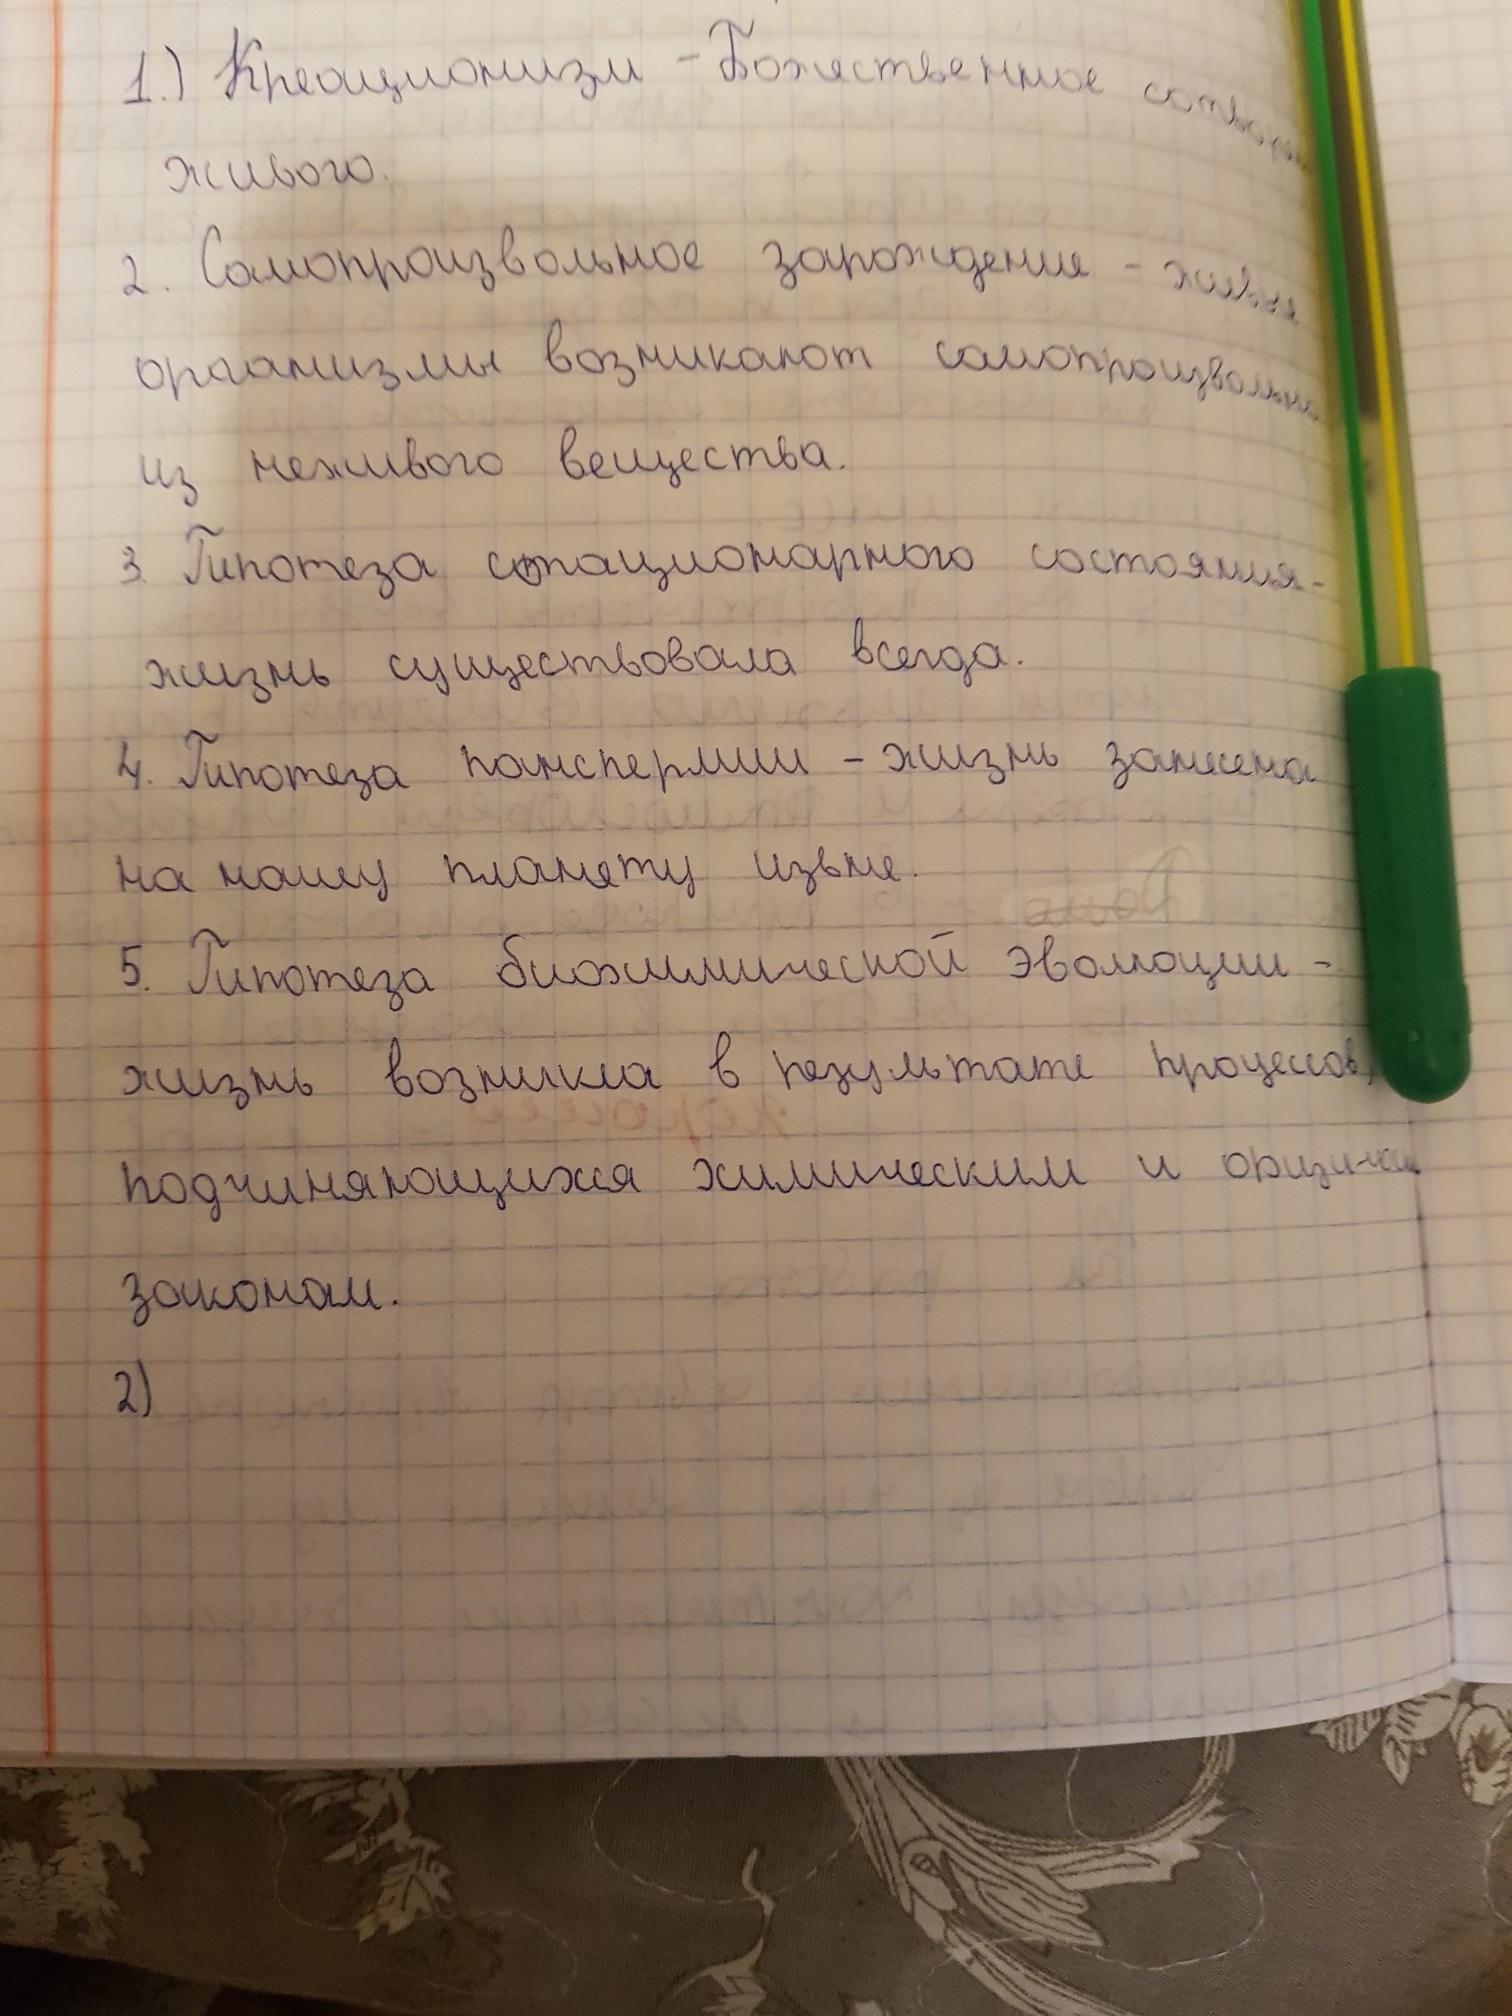 1.) Креационизм - Божественное сотворен
живого.
2. Самопроизвольное зарождение - живые
организмы возникают самопроизвольно
из неживого вещества.
3. Гипотеза стационарного состояния-
жизнь существовала всегда.
4. Гипотеза панспермии - жизнь занесена
на нашу планету извне.
5. Гипотеза биохимической эволюции -
жизнь возникла в результате процессов,
подчиняющихся химическим и физическим
законам.
2)